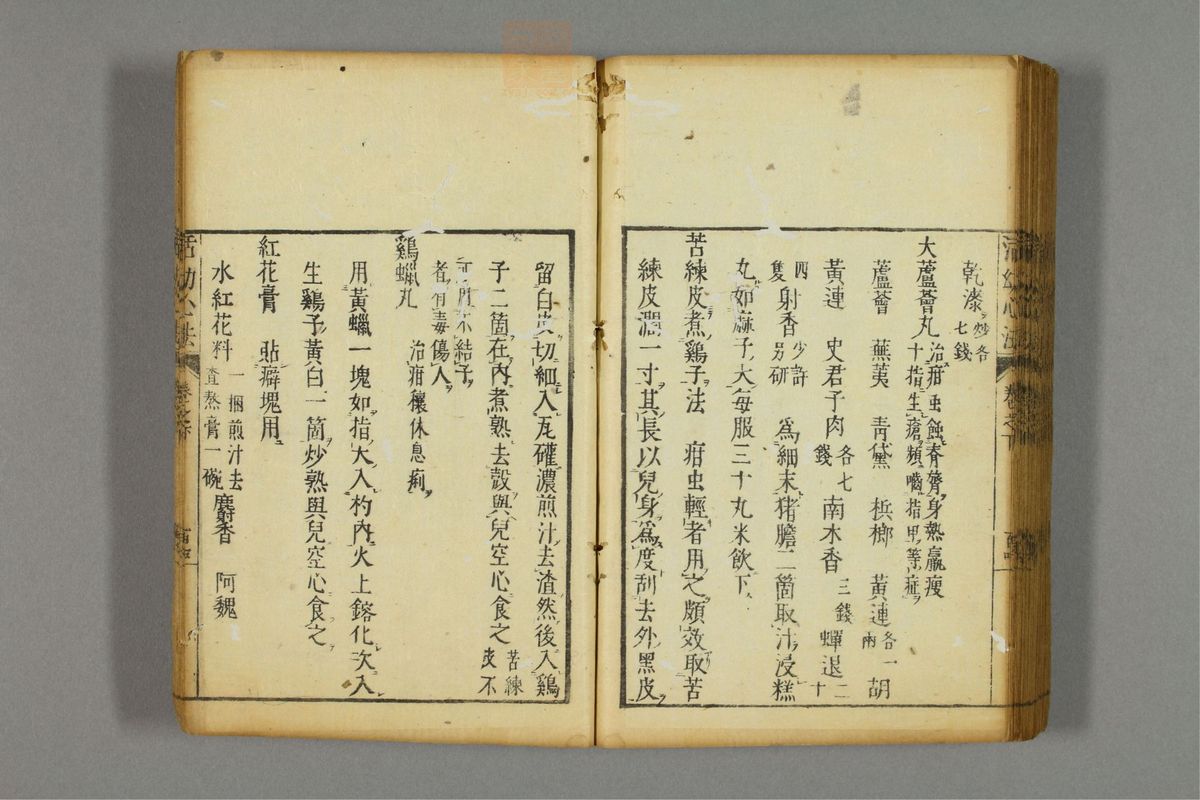 乾漆炒各七錢
大蘆薈丸治疳虫蝕脊膂身熱羸瘦十指生瘡頻嚙指甲等症
蘆薈 蕪荑 青黛 檳榔 黄連各一兩 胡
黄連 史君子肉各七錢 南木香三錢 蟬退二十
四隻 射香少許另研 爲細末猪膽二箇取汁浸糕
丸如麻子大每服三十丸米飲下
苦練皮煮鷄子法 疳虫輕者用之頗效取苦
練皮濶一寸其長以兒身爲度刮去外黒皮
留白皮切細入瓦礶濃煎汁去渣然後入鷄
子二箇在内煮熟去殼與兒空心食之苦練皮不
可用不結子
者有毒傷人
鷄蠟丸 治疳穰休息痢
用黄蠟一塊如指大入杓内火上鎔化次入
生鷄子黄白一箇炒熟與兒空心食之
紅花膏 貼癖塊用
水紅花料一梱煎汁去渣熬膏一碗 麝香 阿魏
活幼心法 卷之下